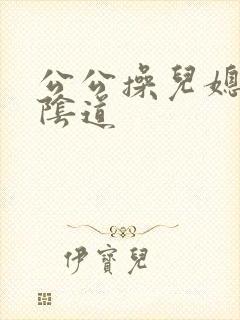 公公操兒媳
陰道
伊寶兒